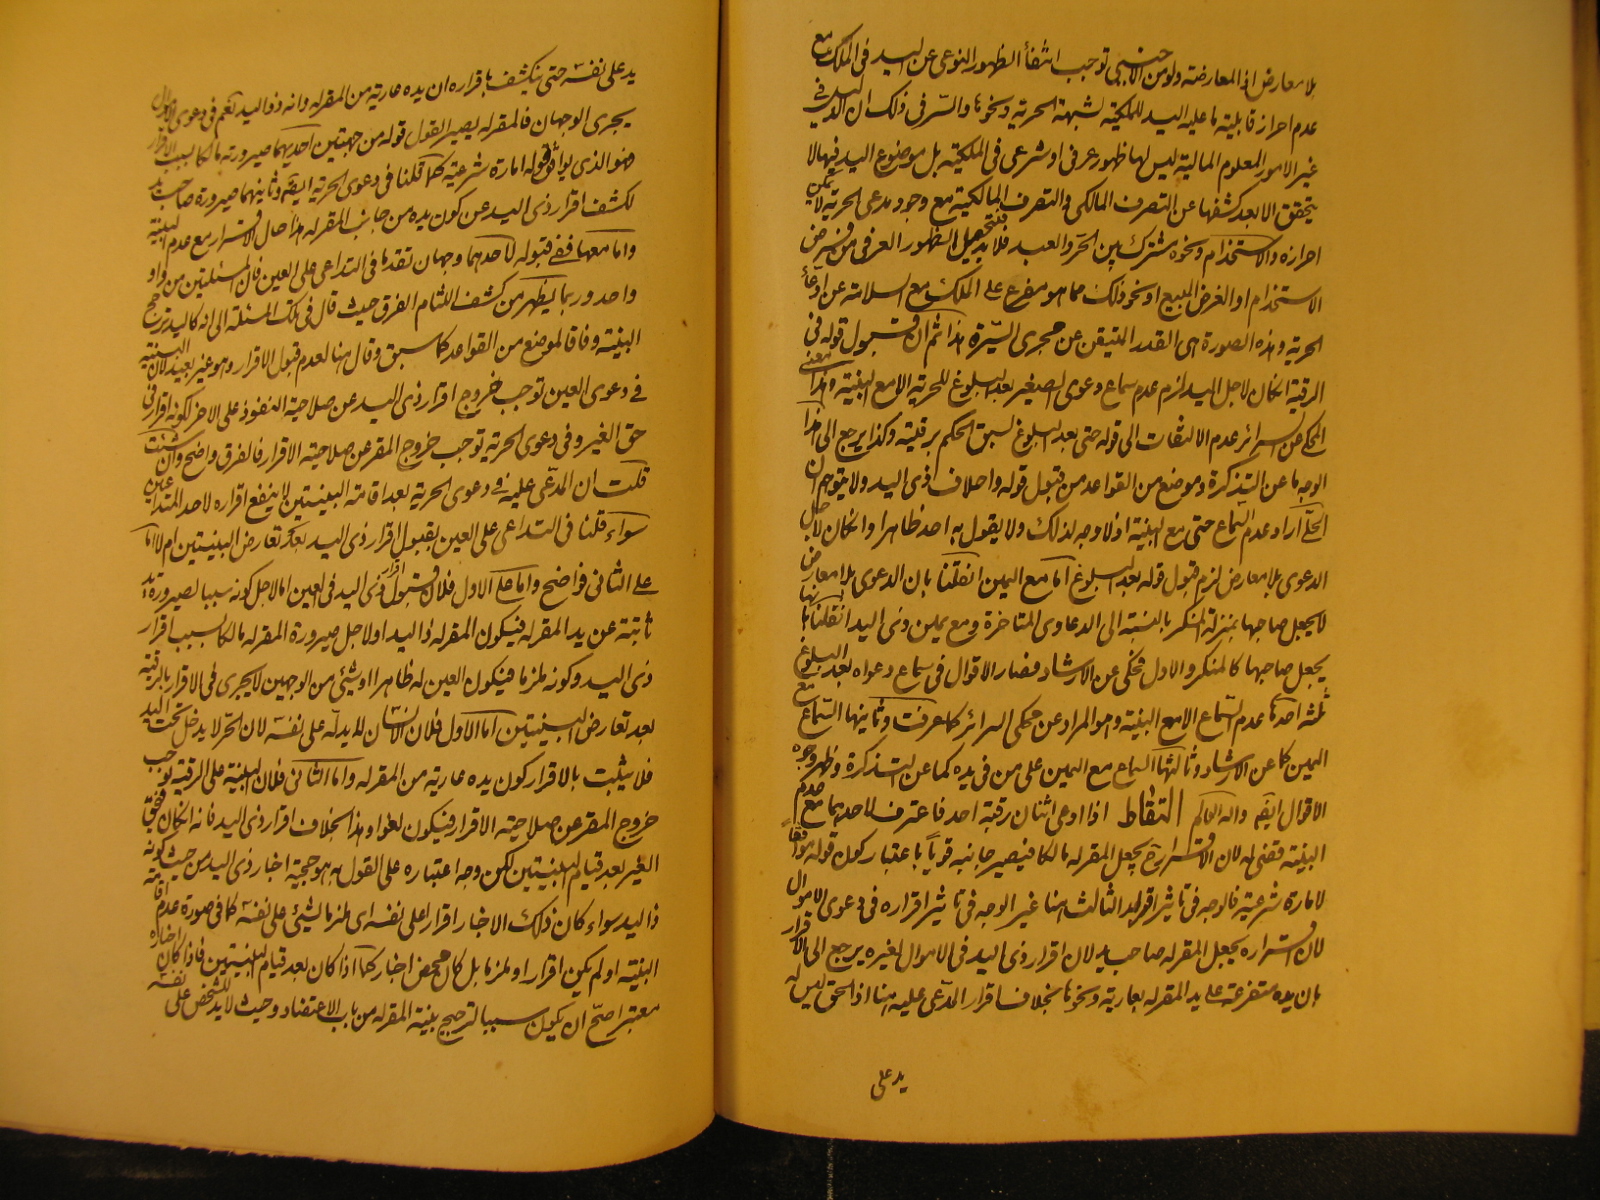 بلا معارض اذ المعارضة ولو من الاجنبي توجب انتفاء الظهور النوعى عن اليد فى الملك مع
عدم احراز قابلية ما عليه اليد للملكية لشبهة الحرية ونحوها والسر فى ذلك ان اليد فى
غير الامور المعلوم المالية ليس لها ظهور عرفى او شرعى فى الملكية بل موضوع اليد فيها لا
يتحقق الا بعد كشفها عن التصرف المالكى والتصرف المالكية مع وجود مدعى الحرية لا يمكن
احرازه والاستخدام ونحوه مشترك بين الحر والعبد فلا بد الظهور العرفى من فرض
الاستخدام او الغرض البيع او نحو ذلك مما هو مفرع على الملك مع السلامة عن ادعاء
الحرية وهذه الصورة هى القدر المتيقن عن مجرى السيرة هذا ثم ان قبول قوله فى
الرقية ان كان لاجل اليد لزم عدم سماع دعوى الصغير بعد البلوغ للحرية الا مع البينة وهذا معنى
المحكى عن السرائر عدم الالتفات الى قوله حتى بعد البلوغ لسبق الحكم برقيته وكذا يرجع الى هذا
الوجه ما عن التذكرة وموضع من القواعد من قبول قوله واحلاف ذى اليد ولا يتوهم ان
الحلى اراد عدم السماع حتى مع البينة اذ لا وجه لذلك ولا يقول به احد ظاهرا وان كان لاجل
الدعوى بلا معارض لزم قبول قوله بعد البلوغ اما مع اليمين ان قلنا بان الدعوى بلا معارض
لا يجعل صاحبها بمنزلة المنكر بالنسبة الى الدعاوى المتاخرة ومع يمين ذى اليد ان قلنا بانها
يجعل صاحبها كالمنكر والاول محكى عن الارشاد فصار الاقوال فى سماع دعواه بعد البلوغ
ثلثة احدها عدم السماع الا مع البينة وهو المراد عن محكى السرائر كما عرفت وثانيها السماع مع
اليمين كما عن الارشاد وثالثها السماع مع اليمين على من فى يده كما عن التذكرة وظهر وجوه
الاقوال ايضا والله العالم التقاط اذا ادعى اثنان رقية احد فاعترف لاحدهما مع عدم
البينة قضى له لان الاقرار يجعل المقر له مالكا فيصير جانبه قويا باعتبار كون قوله موافقا
لامارة شرعية فالوجه فى تاثير اقرار الثالث هنا غير الوجه فى تاثير اقراره فى دعوى الاموال
لان اقراره يجعل المقر له صاحب يد لان اقرار ذى اليد فى الاموال لغيره يرجع الى الاقرار
بان يده متفرعة على يد المقر له بعارية ونحوها بخلاف اقرار المدعى عليه هنا اذ الحق ليس له
يد على
يد على نفسه حتى ينكشف باقراره ان يده عارية من المقر له وانه ذو اليد نعم فى دعوى الاموال
يجرى الوجهان فالمقر له يصير القول قوله من جهتين احديهما صيرورته مالكا بسبب الاقرار
فهو الذى يوافق قوله امارة شرعية كما قلنا فى دعوى الحرية ايضا وثانيهما صيرورة صاحب يد
لكشف اقرار ذى اليد عن كون يده من جانب المقر له هذا حال الاقرار مع عدم البينة
واما معها ففى قبوله لاحدهما وجهان تقدما فى التداعى على العين فان المسئلتين من واد
واحد وربما يظهر من كشف اللثام الفرق حيث قال فى تلك المسئلة الى انه كاليد ترجح
البينة وفاقا لموضع من القواعد كما سبق وقال هنا لعدم قبول الاقرار وهو غير بعيد لان البينة
فى دعوى العين توجب خروج اقرار ذى اليد عن صلاحية النفوذ على الاخر لكونه اقرار فى
حق الغير وفى دعوى الحرية توجب خروج المقر عن صلاحية الاقرار فالفرق واضح وان شئت
قلت ان المدعى عليه فى دعوى الحرية بعد اقامة البينتين لا ينفع اقراره لاحد المتداعيين
سواء قلنا فى التداعى على العين بقبول اقرار ذى اليد بعد تعارض البينتين ام لا اما
على الثانى فواضح واما على الاول فلان قبول اقرار ذى اليد فى العين اما لاجل كونه سببا لصيرورة يده
ثابتة عن يد المقر له فيكون المقر له ذا اليد او لاجل صيرورة المقر له مالكا بسبب اقرار
ذى اليد وكونه ملزما فيكون العين له ظاهرا وشئ من الوجهين لا يجرى فى الاقرار بالرقية
بعد تعارض البينتين اما الاول فلان الانسان لا يد له على نفسه لان الحر لا يدخل تحت اليد
فلا يثبت بالاقرار كون يده عارية من المقر له واما الثانى فلان البينة على الرقية توجب
خروج المقر عن صلاحية الاقرار فيكون لغوا وهذا بخلاف اقرار ذى اليد فانه ان كان فى حق
الغير بعد قيام البينتين لكن وجه اعتباره على القول به هو حجية اخبار ذى اليد من حيث كونه
ذا اليد سواء كان ذلك الاخبار اقرارا على نفسه اى ملزما لشئ على نفسه كما فى صورة عدم اقامة
البينة او لم يكن اقرارا وملزما بل كان محض اخبار كما اذا كان بعد قيام البينتين فاذا كان اخباره
معتبرا صح ان يكون سببا لترجيح بينة المقر له من باب الاعتضاد وحيث لا يد للشخص على نفسه